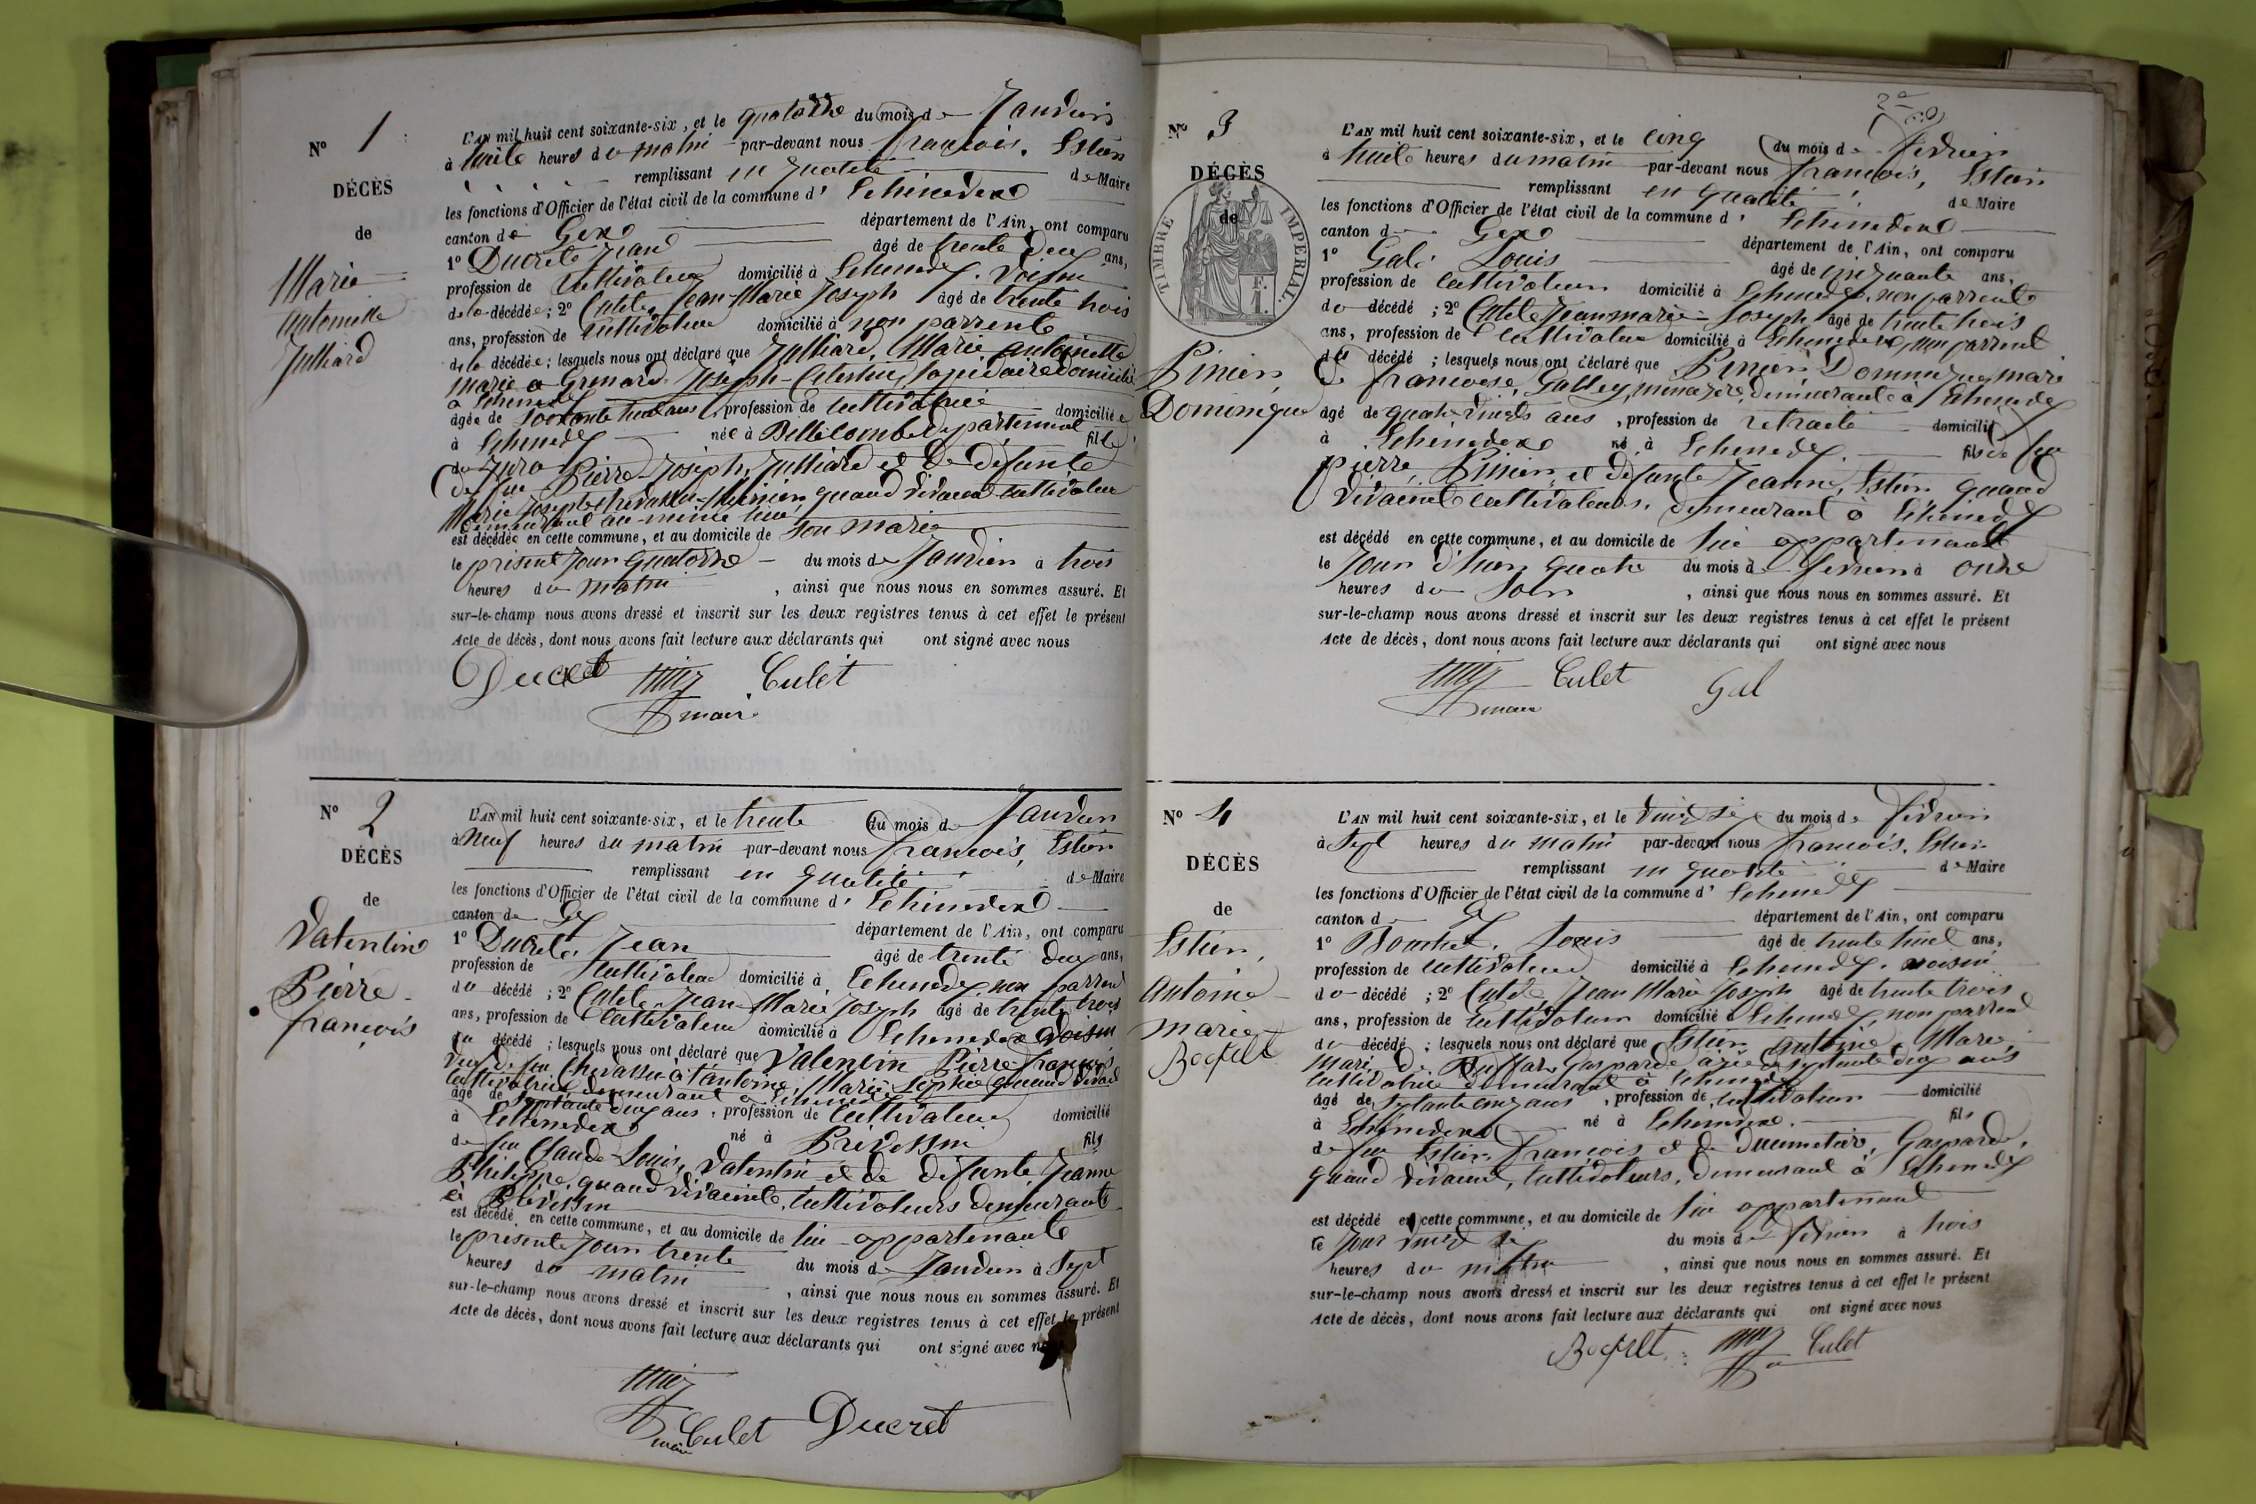 N° 1
DÉCÈS
de
Marie
antoinette
Julliard
L'AN mil huit cent soixante-six, et le quatorze du mois de Janvier
à huit heures du matin par-devant nous françois, Estier
remplissant en qualité de Maire
les fonctions d'Officier de l'état civil de la commune d' Echenevex
canton de Gex département de l'Ain, ont comparu
1° Ducret Jean âgé de trente deux ans,
profession de Cultivateur domicilié à Echenevex, voisin
de la décédée; 2° Culet, Jean Marie Joseph âgé de trente trois
ans, profession de cultivateur domicilié à non parrent
de la décédée; lesquels nous ont déclaré que Julliard, Marie antoinette
marié a Grenard Joseph-Celestin, lapidaire domicilié
a Echenevex
âgée de ans, profession de cultivatrice domiciliée
à Echenevex née à Bellecombe département fille
du Jura
de feu Pierre-Joseph, Julliard et de défunte
Marie Josephe quand vivaient cultivateur
demeurant au même lieu,
est décédée en cette commune, et au domicile de son marie
le présent Jour quatorze du mois de Janvier à trois
heures du matin, ainsi que nous nous en sommes assuré. Et
sur-le-champ nous avons dressé et inscrit sur les deux registres tenus à cet effet le présent
Acte de décès, dont nous avons fait lecture aux déclarants qui ont signé avec nous
Ducret Culet
maire
N° 2
DÉCÈS
de
Valentin
Pierre
françois
L'AN mil huit cent soixante-six, et le trente du mois de Janvier
à neuf heures du matin par-devant nous françois, Estier
remplissant en qualité de Maire
les fonctions d'Officier de l'état civil de la commune d' Echenevex
canton de Gex département de l'Ain, ont comparu
1° Ducret, Jean âgé de trente deux ans,
profession de Cultivateur domicilié à Echenevex, non parrent
du décédé; 2° Culet Jean Marie Joseph âgé de trente trois
ans, profession de Cultivateur domicilié à Echenevex voisin
du décédé; lesquels nous ont déclaré que Valentin Pierre françois
veuf de feu Chevassu Marie Sophie quand vivait
cultivatrice demeurant à Echenevex
âgé de septante deux ans, profession de cultivateur domicilié
à Echenevex né à Prévessin fils
de feu Claude-Louis, Valentin et de défunte, Jeanne
Philippe, quand vivaient, cultivateurs demeurant
à Prévessin
est décédé en cette commune, et au domicile de lui appartenant
le présent Jour trente du mois de Janvier à Sept
heures du matin, ainsi que nous nous en sommes assuré. Et
sur-le-champ nous avons dressé et inscrit sur les deux registres tenus à cet effet le présent
Acte de décès, dont nous avons fait lecture aux déclarants qui ont signé avec
maire Culet Ducret
N° 3
DÉCÈS
de
TIMBRE IMPERIAL.
F.
1.
Pinier,
Dominique
L'AN mil huit cent soixante-six, et le cinq du mois de février
à huit heures du matin par-devant nous françois, Estier
remplissant en qualité de Maire
les fonctions d'Officier de l'état civil de la commune d' Echenevex
canton de Gex département de l'Ain, ont comparu
1° Gal, Louis âgé de cinquante ans,
profession de cultivateur domicilié à Echenevex, non parrent
du décédé; 2° Culet Jean marie Joseph âgé de trente trois
ans, profession de Cultivateur domicilié à Echenevex, non parrent
du décédé; lesquels nous ont déclaré que Pinier Dominique, mari
de françoise, ménagère, demeurant à Echenevex
âgé de quatre vingts ans, profession de retraité domicilié
à Echenevex né à Echenevex fils de feu
Pierre, Pinier, et défunte Jeanne, Estier quand
vivaient cultivateurs, demeurant à Echenevex
est décédé en cette commune, et au domicile de lui appartenant
le Jour d'hier quatre du mois de février à onze
heures du soir, ainsi que nous nous en sommes assuré. Et
sur-le-champ nous avons dressé et inscrit sur les deux registres tenus à cet effet le présent
Acte de décès, dont nous avons fait lecture aux déclarants qui ont signé avec nous
maire Culet Gal
N° 4
DÉCÈS
de
Estier,
Antoine
marie
L'AN mil huit cent soixante-six, et le du mois de février
à Sept heures du matin par-devant nous françois, Estier
remplissant en qualité de Maire
les fonctions d'Officier de l'état civil de la commune d' Echenevex
canton de Gex département de l'Ain, ont comparu
1° Louis âgé de trente huit ans,
profession de cultivateur domicilié à Echenevex, voisin
du décédé; 2° Culet, Jean Marie Joseph âgé de trente trois
ans, profession de Cultivateur domicilié à Echenevex non parrent
du décédé; lesquels nous ont déclaré que Estier Antoine, Marie,
mari de Gasparde âgée de septante deux ans
cultivatrice demeurant à Echenevex
âgé de septante cinq ans, profession de cultivateur domicilié
à Echenevex né à Echenevex fils
de feu Estier, françois et de Ducimetière, Gasparde,
quand vivaient, cultivateurs, demeurant à Echenevex
est décédé en cette commune, et au domicile de lui appartenant
le Jour du mois de février à trois
heures du matin, ainsi que nous nous en sommes assuré. Et
sur-le-champ nous avons dressé et inscrit sur les deux registres tenus à cet effet le présent
Acte de décès, dont nous avons fait lecture aux déclarants qui ont signé avec nous
Culet